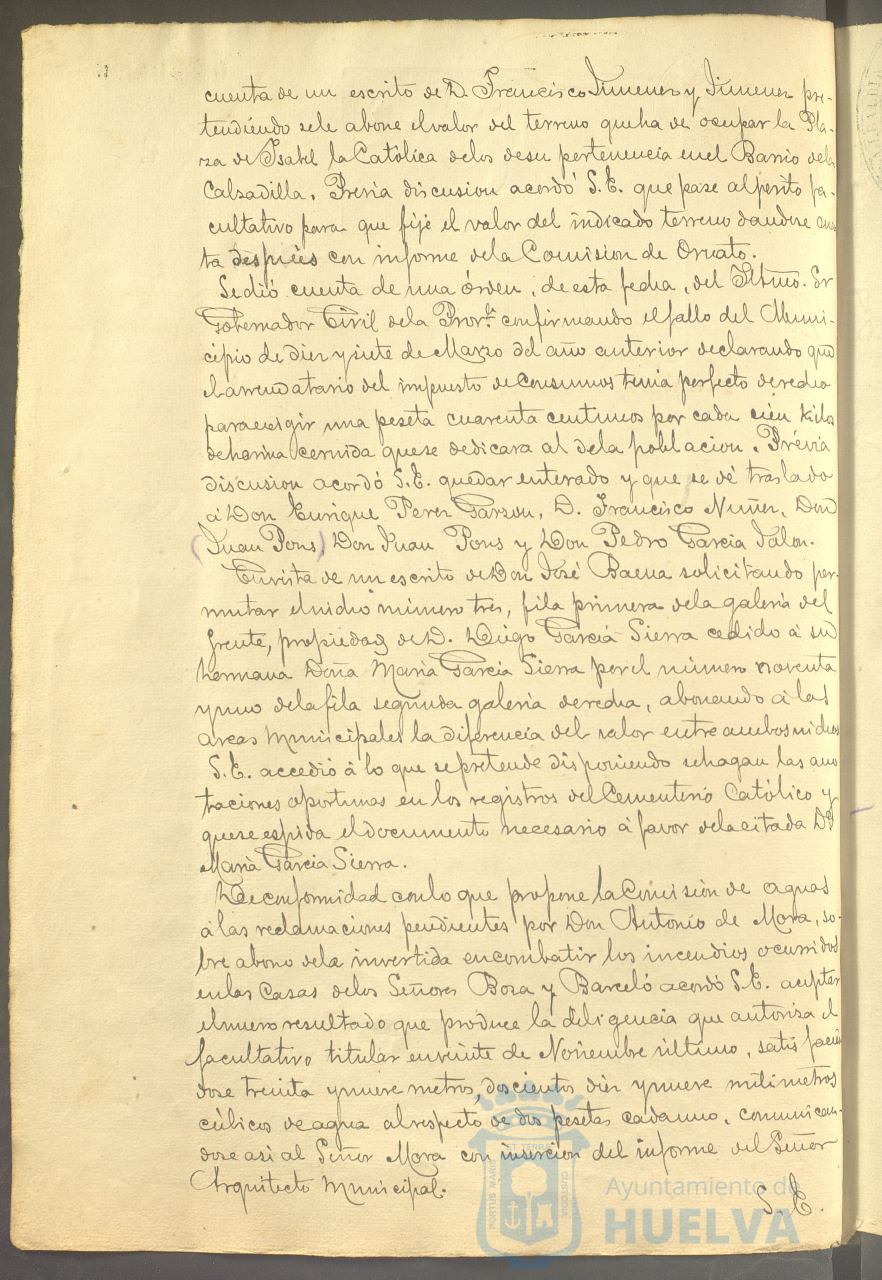 cuenta de un escrito de D. Francisco Jimenez y Jimenez pre-
tendiendo se le abone el valor del terreno que ha de ocupar la Pla-
za de Isabel la Católica de los de su pertenencia en el Barrio de la
Calzadilla. Previa discusion acordó S.E. que pase al perito fa-
cultativo para que fije el valor del indicado terreno dandose cuen
ta después con informe de la Comision de Ornato.
Se dió cuenta de una órden, de esta fecha, del Iltmo. Sr
Gobernador Civil de la Prov.ª confirmando el fallo del Muni-
cipio de diez y siete de Marzo del año anterior declarando que
el arrendatario del impuesto de consumos tenia perfecto derecho
para exigir una peseta cuarenta centimos por cada cien kilos
de harina cernida que se dedicara al de la poblacion. Prévia
discusion acordó S.E. quedar enterado y que se dé traslado
á Don Enrique Perez Garzon, D. Francisco Nuñez, Don
(Juan Pons) Don Juan Pons y Don Pedro Garcia Jalon.
En vista de un escrito de Don José Baena solicitando per-
mutar el nicho número tres, fila primera de la galeria del
frente, propiedad de D. Diego Garcia Sierra cedido á su
hermana Doña Maria Garcia Sierra por el número noventa
y uno de la fila segunda galeria derecha, abonando á las
arcas municipales la diferencia del valor entre ambos nichos
S.E. accedió á lo que se pretende disponiendo se hagan las ano
taciones oportunas en los registros del Cementerio Católico y
que se espida el documento necesario á favor de la citada Dª
Maria Garcia Sierra.
De conformidad con lo que propone la Comisión de aguas
á las reclamaciones pendientes por Don Antonio de Mora, so-
bre abono de la invertida en combatir los incendios ocurridos
en las Casas de los Señores Boza y Barceló acordó S.E. aceptar
el nuevo resultado que produce la diligencia que autoriza el
facultativo titular en veinte de Noviembre último, satisfacien
dose treinta y nueve metros, doscientos diez y nueve milimetros
cúbicos de agua al respecto de dos pesetas cada uno, comunican-
dose asi al Señor Mora con insercion del informe del Señor
Arquitecto Municipal.
S. E.
PORTUS MARIS ET TERRAE CUSTODIA
Ayuntamiento de
HUELVA